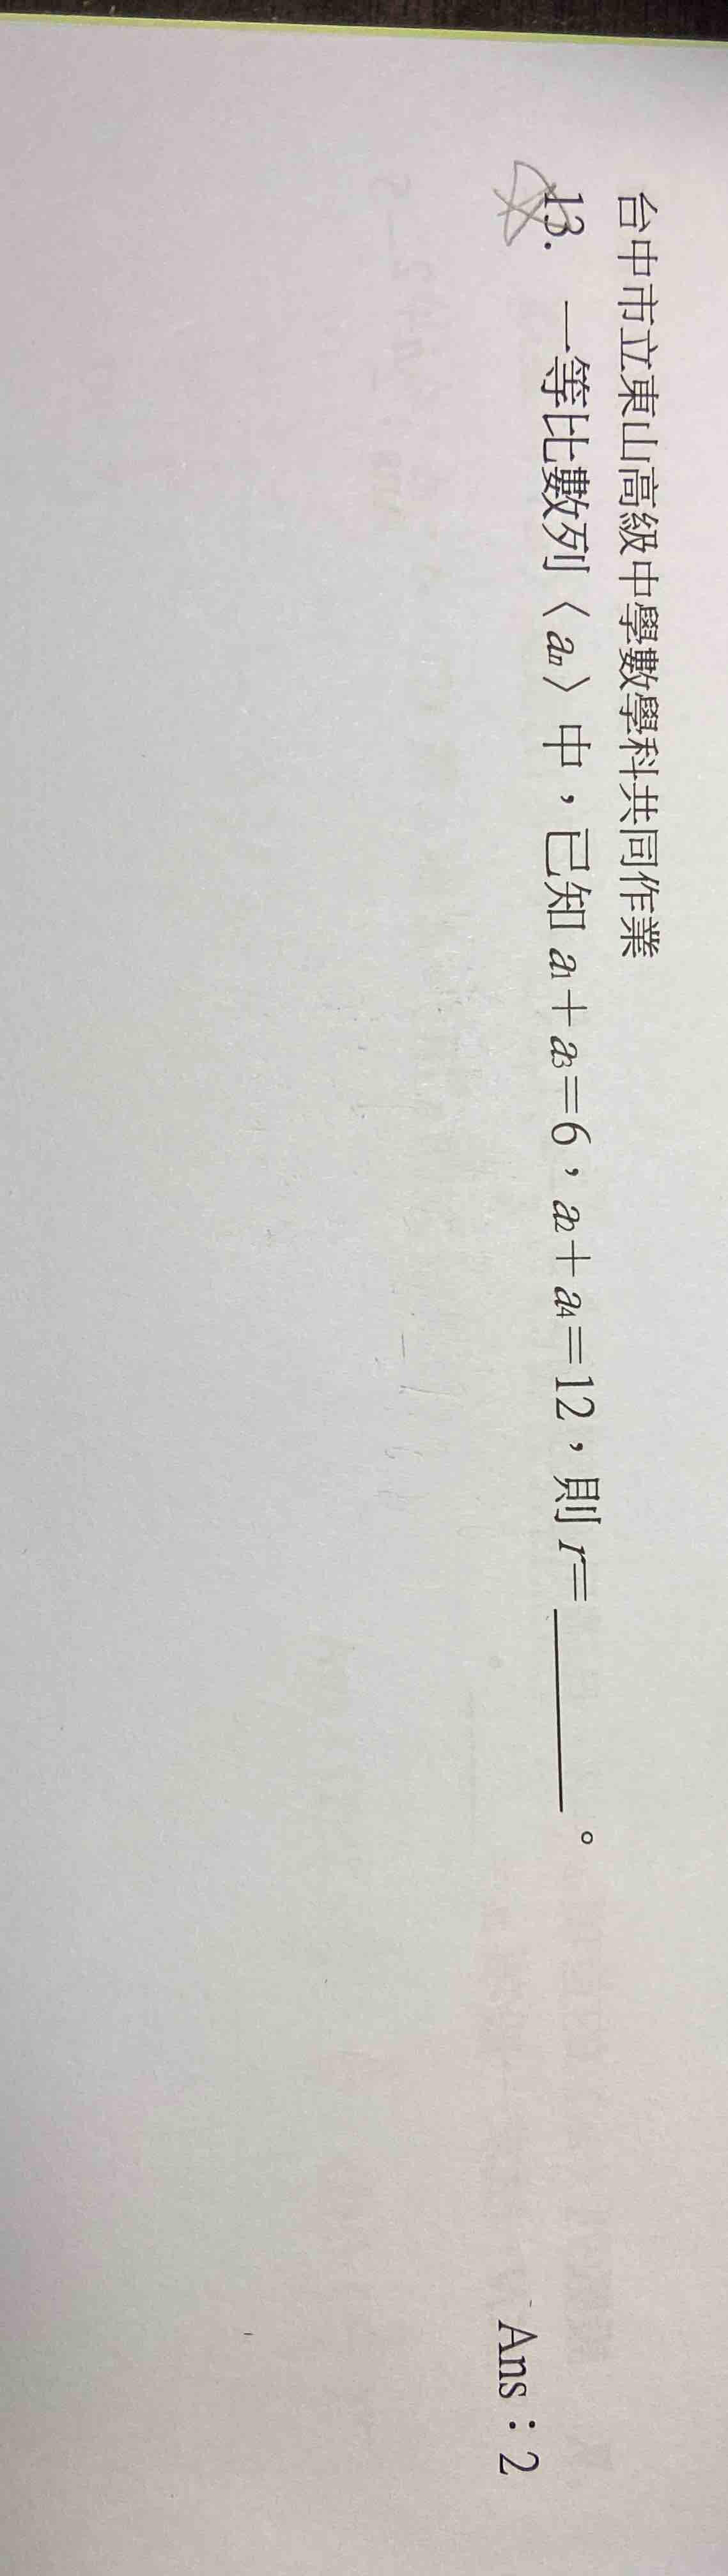 台中市立東山高級中學數學科共同作業
13. 一等比數列〈an〉中，已知 a1＋a3＝6，a2＋a4＝12，則 r＝＿＿＿＿。
Ans：2